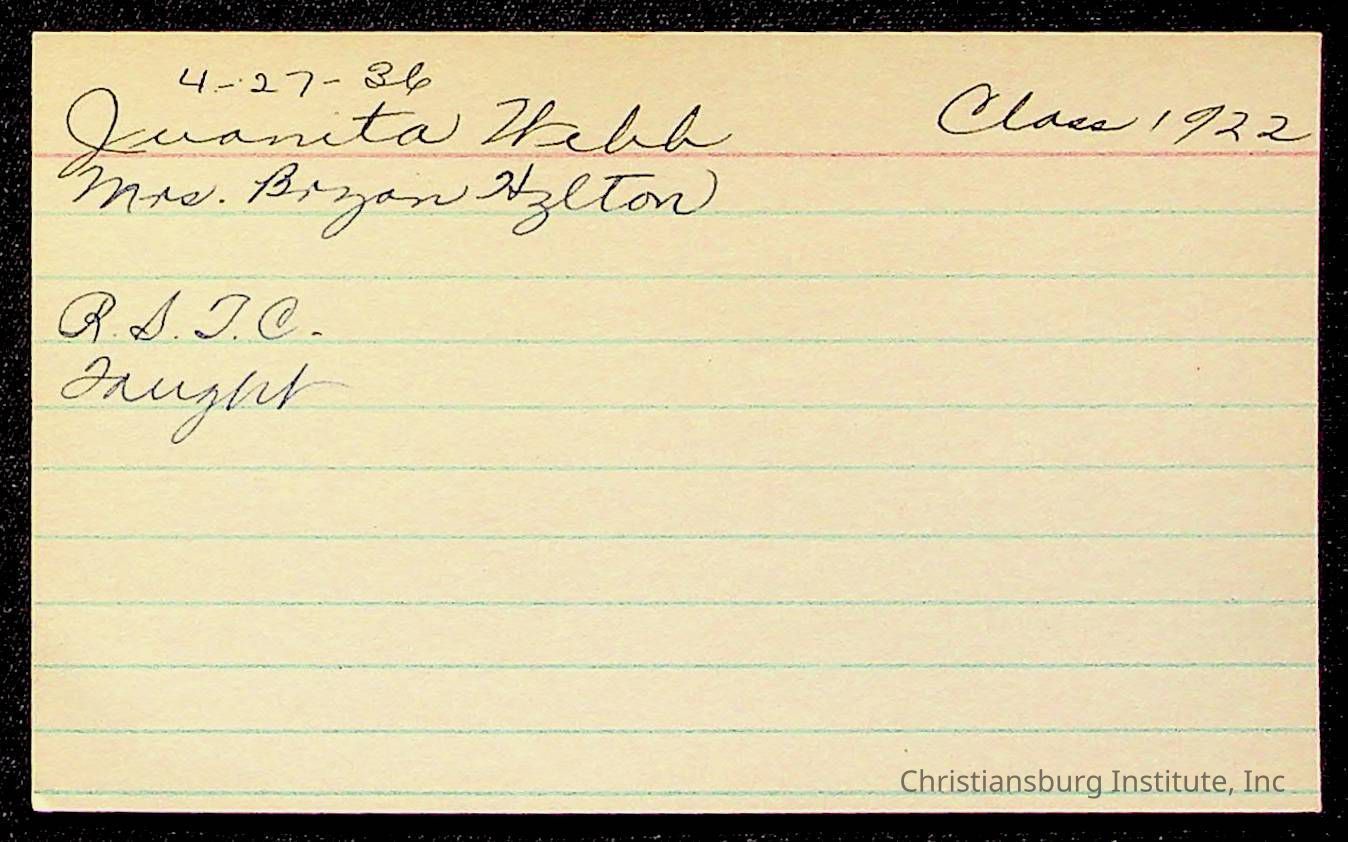 4-27-36
Juanita Webb Class 1922
Mrs. Bryan Hylton
R.S.T.C.
Taught
Christiansburg Institute, Inc